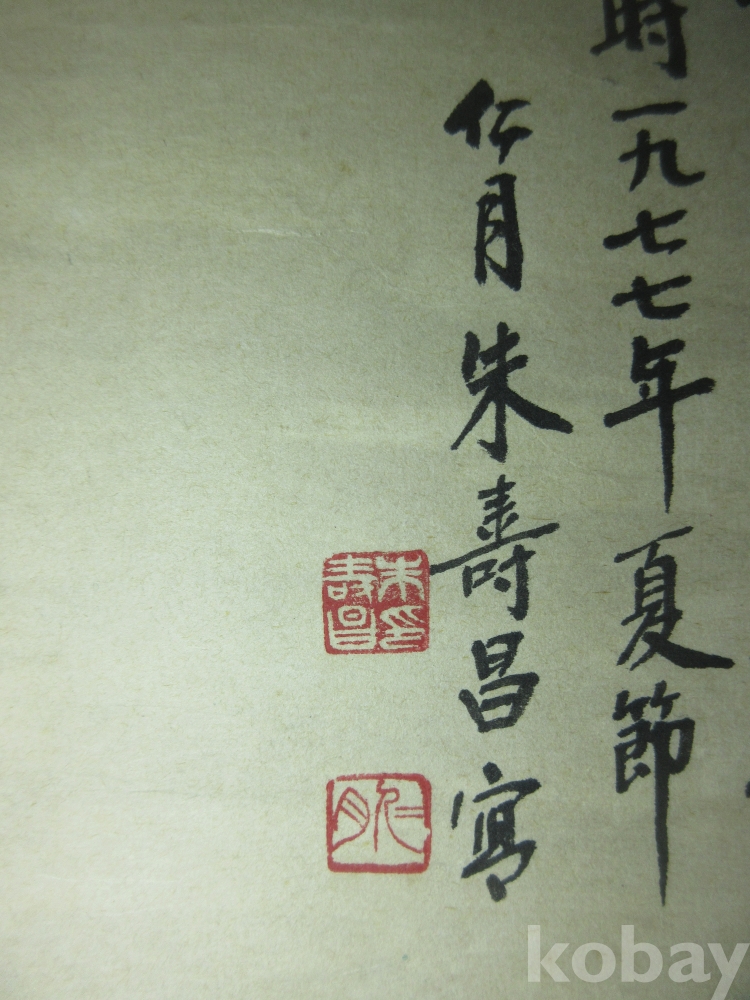 時一九七七年夏節
月朱壽昌寫
朱印
壽昌
月
kobay